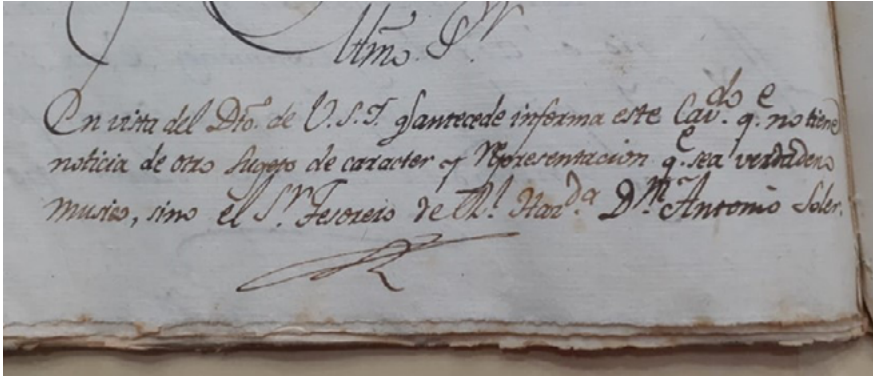 Iltmo. Sr.
En vista del Dto. de V.S.I. q antecede informa este Cavdo. qe. no tiene
noticia de otro Sugeto de caracter y Representacion qe. sea verdadero
musico, sino el Sr. Tesorero de Rl. Hazda. Dn. Antonio Soler.